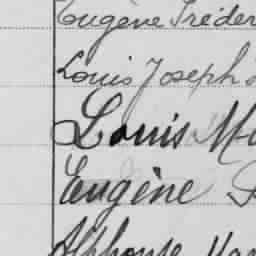 Eugène Fréder
Louis Joseph
Louis Ma
Eugène
Alphonse Mar